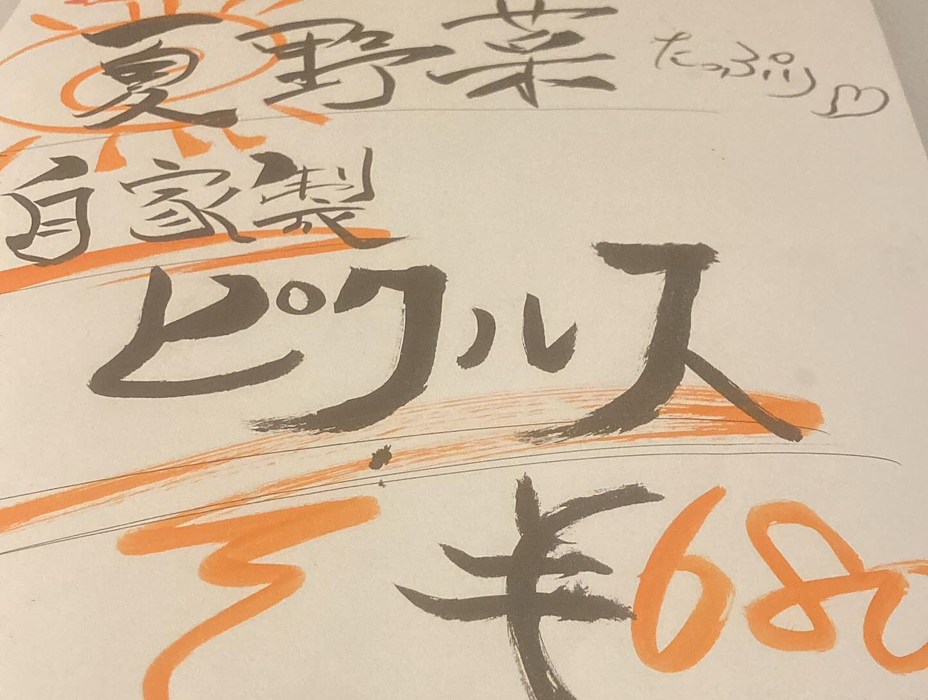 夏野菜たっぷり♡
自家製
ピクルス
¥680